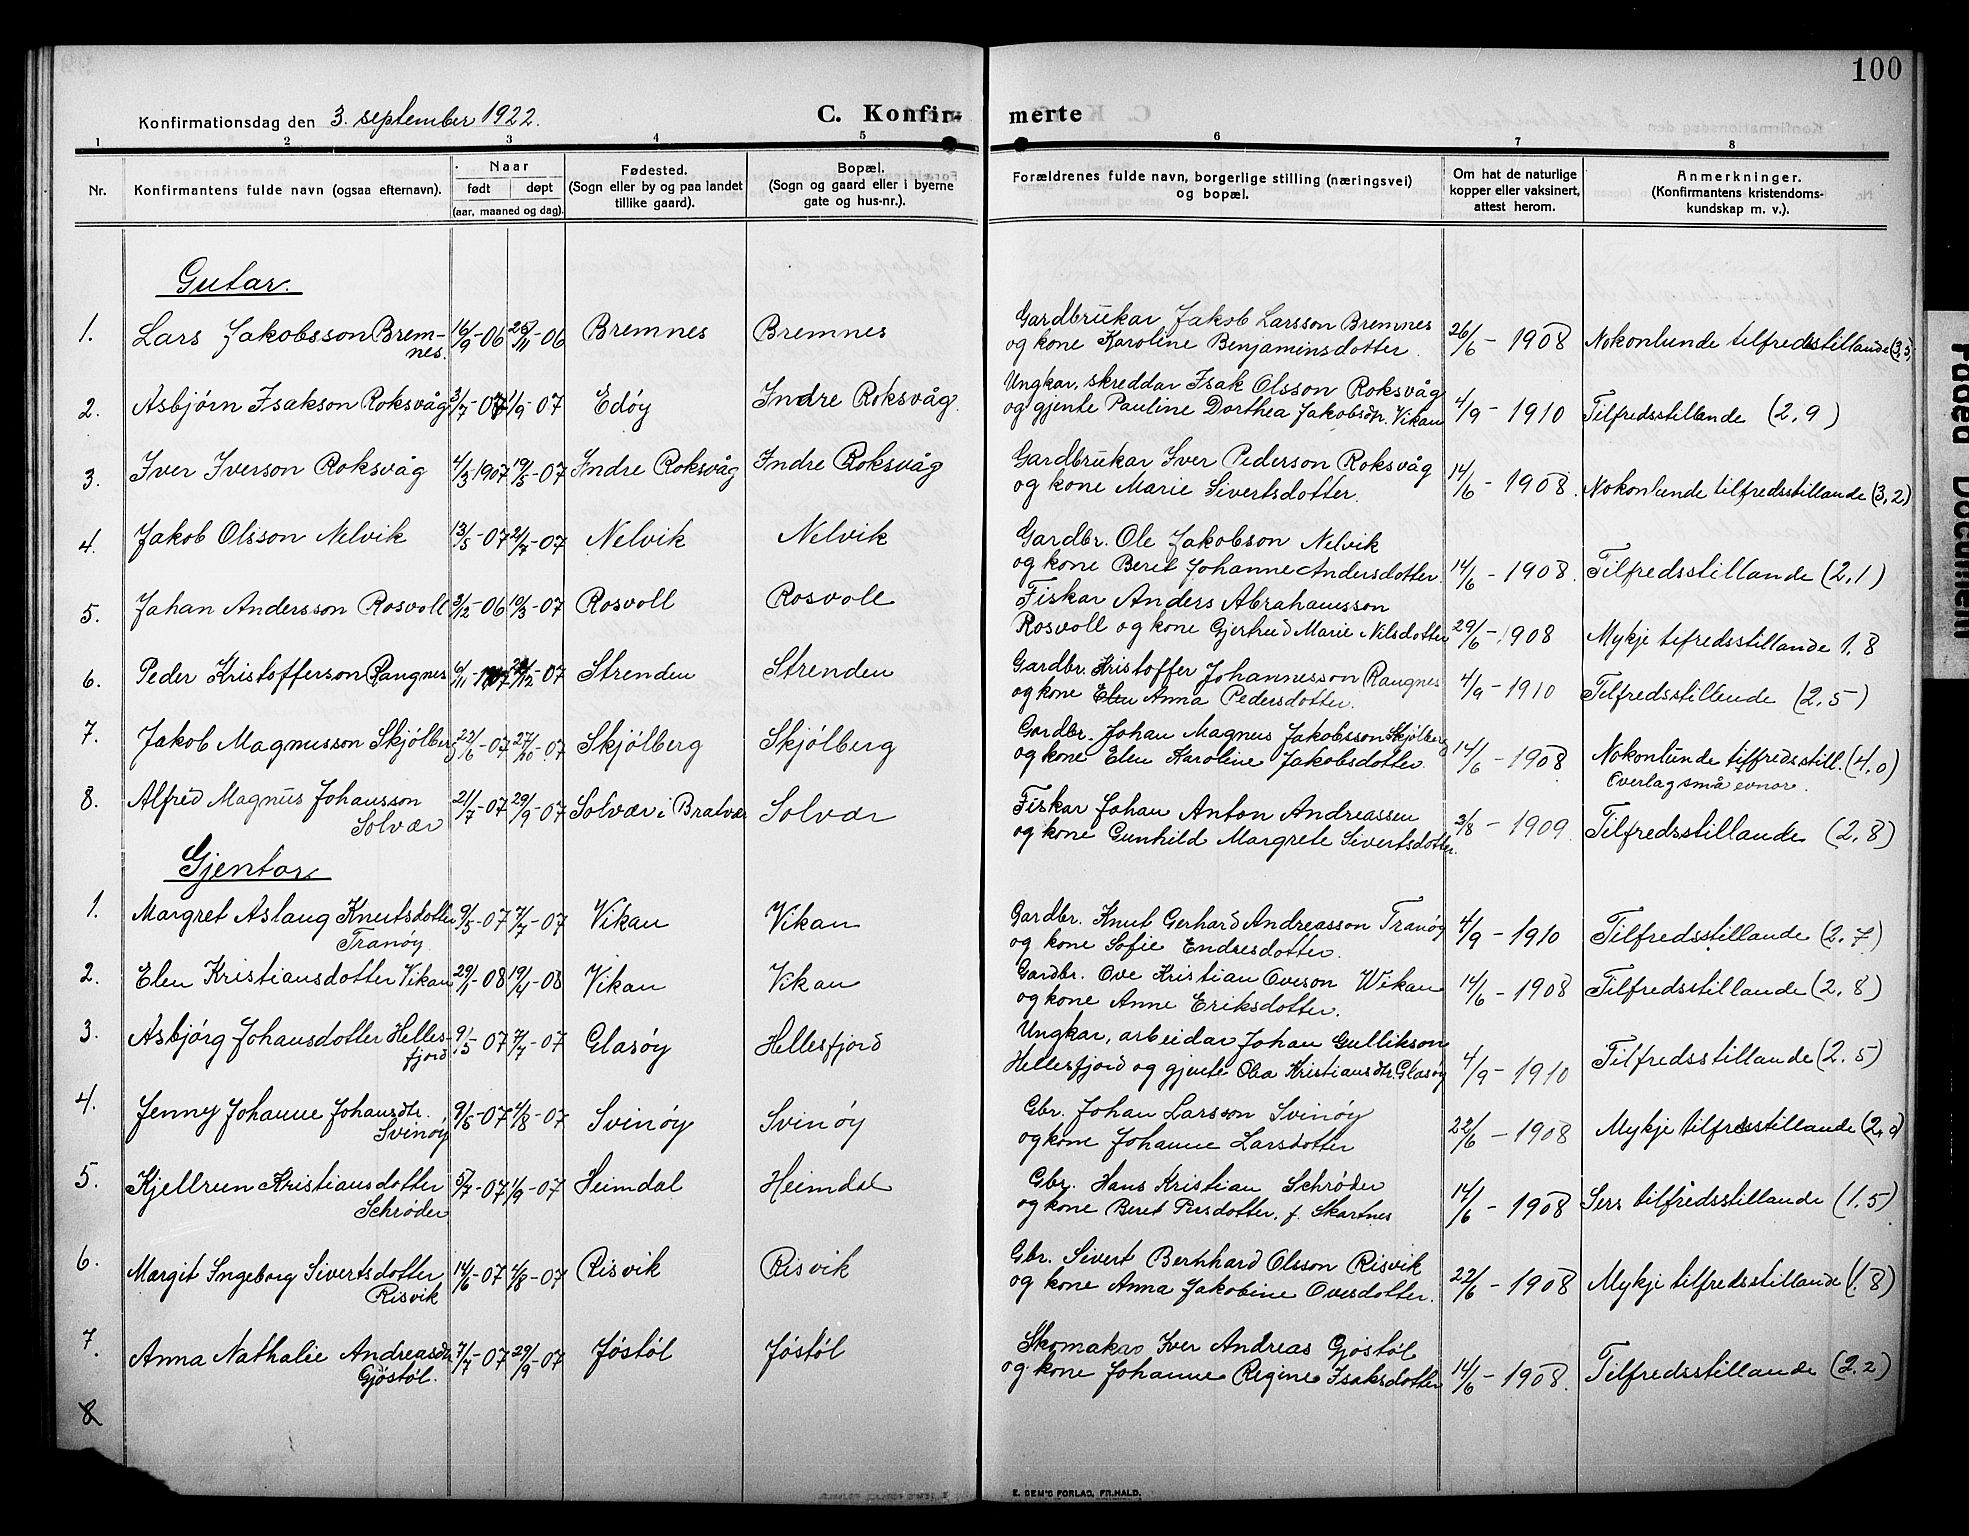 100
Konfirmationsdag den 3. september 1922.
C. Konfir- merte
1 2 3 4 5 6 7 8
Nr.
Konfirmantens fulde navn (ogsaa efternavn).
Naar
født
døpt
(aar, maaned og dag).
Fødested.
(Sogn eller by og paa landet
tillike gaard).
Bopæl.
(Sogn og gaard eller i byerne
gate og hus-nr.).
Forældrenes fulde navn, borgerlige stilling (næringsvei)
og bopæl.
Om hat de naturlige
kopper eller vaksinert,
attest herom.
Anmerkninger.
(Konfirmantens kristendoms-
kundskap m. v.).
Gutar.
1. Lars Jakobsson Brem-nes. 16/9-06 25/11-06 Bremnes Bremnes
Gardbrukar Jakob Larsson Bremnes
og kone Karoline Benjaminsdotter. 26/6-1908 Nokonlunde tilfredsstillande (3,5)
2. Asbjørn Isakson Roksvåg 3/7-07 1/9-07 Edøy Indre Roksvåg.
Ungkar, skreddar Isak Olsson Roksvåg
og gjente Pauline Dorthea Jakobsdtr. Vikan 4/9-1910 Tilfredsstillande (2,9)
3. Iver Iverson Roksvåg 4/3 1907 19/5-07 Indre Roksvåg Indre Roksvåg
Gardbrukar Iver Pederson Roksvåg
og kone Marie Sivertsdotter. 14/6-1908. Nokonlunde tilfredsstillande (3,2)
4. Jakob Olsson Nelvik 13/5-07 21/7-07 Nelvik Nelvik
Gardbr. Ole Jakobson Nelvik
og kone Beret Johanne Andersdotter. 14/6-1908. Tilfredsstillande (2,1)
5. Johan Andersson Rosvoll 3/12-06 10/3-07 Rosvoll Rosvoll
Fiskar Anders Abrahamsson
Rosvoll og kone Gjertrud Marie Nilsdotter 29/6-1908 Mykje tifredsstillande 1,8
6. Peder Kristofferson Rangnes 6/11-1907 /12-07 Strenden Strenden
Gardbr. Kristoffer Johannesson Rangnes
og kone Elen Anna Pedersdotter. 4/9-1910 Tilfredsstillende (2,5)
7. Jakob Magnusson Skjølberg 22/6-07 27/10-07 Skjølberg Skjølberg
Gardbr. Johan Magnus Jakobsson Skjølberg
og kone Elen Karoline Jakobsdotter. 14/6-1908 Nokonlunde tilfredsstill. (4,0)
Overlag små evnor.
8. Alfred Magnus Johansson
Solvær 21/7-07 29/9-07 Solvær i Bratvær Solvær
Fiskar Johan Anton Andreassen
og kone Gunhild Margrete Sivertsdotter. 3/8-1909. Tilfredsstillande (2,8)
Gjentor
1. Margret Aslaug Knutsdotter
Tranøy. 9/5-07 7/7-07 Vikan Vikan
Gardbr. Knut Gerhard Andreasson Tranøy
og kone Sofie Endresdotter. 4/9-1910 Tilfredsstillande (2,7)
2. Elen Kristiansdotter Vikan 29/1-08 19/4-08 Vikan Vikan
Gardbr. Ove Kristian Oveson Wikan
og kone Anne Eriksdotter. 14/6-1908 Tilfredsstillande (2,8)
3. Asbjørg Johansdotter Helles-
fjord 9/5-07 7/7-07 Glasøy Hellesfjord
Ungkar, arbeidar Johan Gullikson
Hellesfjord og gjente Olea Kristiansdtr. Glasøy 4/9-1910 Tilfredsstillande (2.5)
4. Jenny Johanne Johansdtr.
Svinøy 9/5-07 4/8-07 Svinøy Svinøy
Gbr. Johan Larsson Svinøy
og kone Johanne Larsdotter 22/6-1908 Mykje tilfredsstillande (2,0)
5. Kjellrun Kristiansdotter
Schrøder 5/7-07 1/9-07 Heimdal Heimdal
Gbr. Hans Kristian Schrøder
og kone Beret Persdotter. f. Skartnes 14/6-1908 Sers tilfredsstillande (1,5)
6. Margit Ingeborg Sivertsdotter
Risvik 14/6-07 4/8-07 Risvik Risvik
Gbr. Sivert Bernhard Olsson Risvik
og kone Anna Jakobine Ovesdotter. 22/6-1908 Mykje tilfredsstillande (1.8)
7. Anna Nathalie Andreasdtr
Gjøstøl. 7/7-07 29/9-07 Jøstøl Jøstøl
Skomakar Iver Andreas Gjøstøl
og kone Johanne Regine Isaksdotter 14/6-1908. Tilfredsstillande (2.2)
8
E. SEM'S FORLAG, FR.HALD.
Faded Document